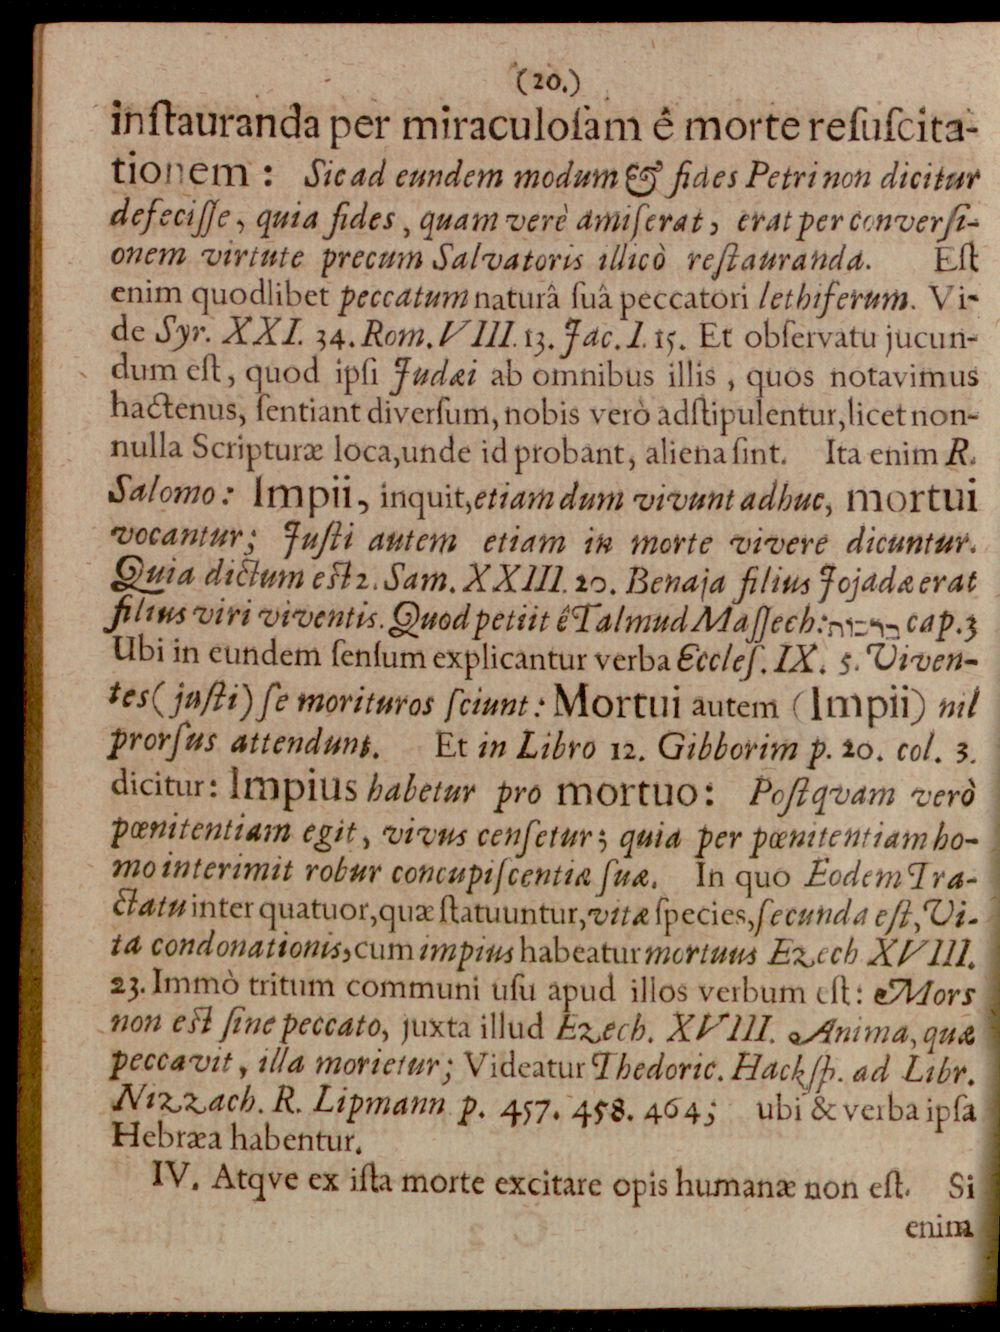 (20.)
inſtauranda per miraculoſam ê morte reſuſcita-
tionem : Sic ad eundem modum & fides Petri non dicitur
defeciſſe, quia fides, quam verè amiſerat, erat per converſi-
onem virtute precum Salvatoris illicò reſtauranda. Eſt
enim quodlibet peccatum naturâ ſuâ peccatori lethiferum. Vi-
de Syr. XXI. 34. Rom. VIII. 13. Jac. I. 15. Et obſervatu jucun-
dum eſt, quod ipſi Judæi ab omnibus illis, quos notavimus
hactenus, ſentiant diverſum, nobis verò adſtipulentur, licet non-
nulla Scripturæ loca, unde id probant, aliena ſint. Ita enim R.
Salomo: Impii, inquit, etiam dum vivunt adhuc, mortui
vocantur; Juſti autem etiam in morte vivere dicuntur.
Quia dictum eſt 2. Sam. XXIII. 20. Benaja filius Jojadæ erat
filius viri viventis. Quod petiit ê Talmud Maſſech: ברכות cap. 3
Ubi in eundem ſenſum explicantur verba Eccleſ. IX. 5. Viven-
tes (juſti) ſe morituros ſciunt: Mortui autem (Impii) nil
prorſus attendunt. Et in Libro 12. Gibborim p. 20. col. 3.
dicitur: Impius habetur pro mortuo: Poſtqvam verò
pœnitentiam egit, vivus cenſetur; quia per pœnitentiam ho-
mo interimit robur concupiſcentiæ ſuæ. In quo Eodem Tra-
ctatu inter quatuor, quæ ſtatuuntur, vitæ ſpecies, ſecunda eſt, Vi-
ta condonationis, cum impius habeatur mortuus Ezech XVIII.
23. Immò tritum communi uſu apud illos verbum eſt: Mors
non eſt ſine peccato, juxta illud Ezech. XVIII. Anima, quæ
peccavit, illa morietur; Videatur Thedoric. Hackſp. ad Libr.
Nizzach. R. Lipmann p. 457. 458. 464; ubi & verba ipſa
Hebræa habentur.
IV. Atqve ex iſta morte excitare opis humanæ non eſt. Si
enim